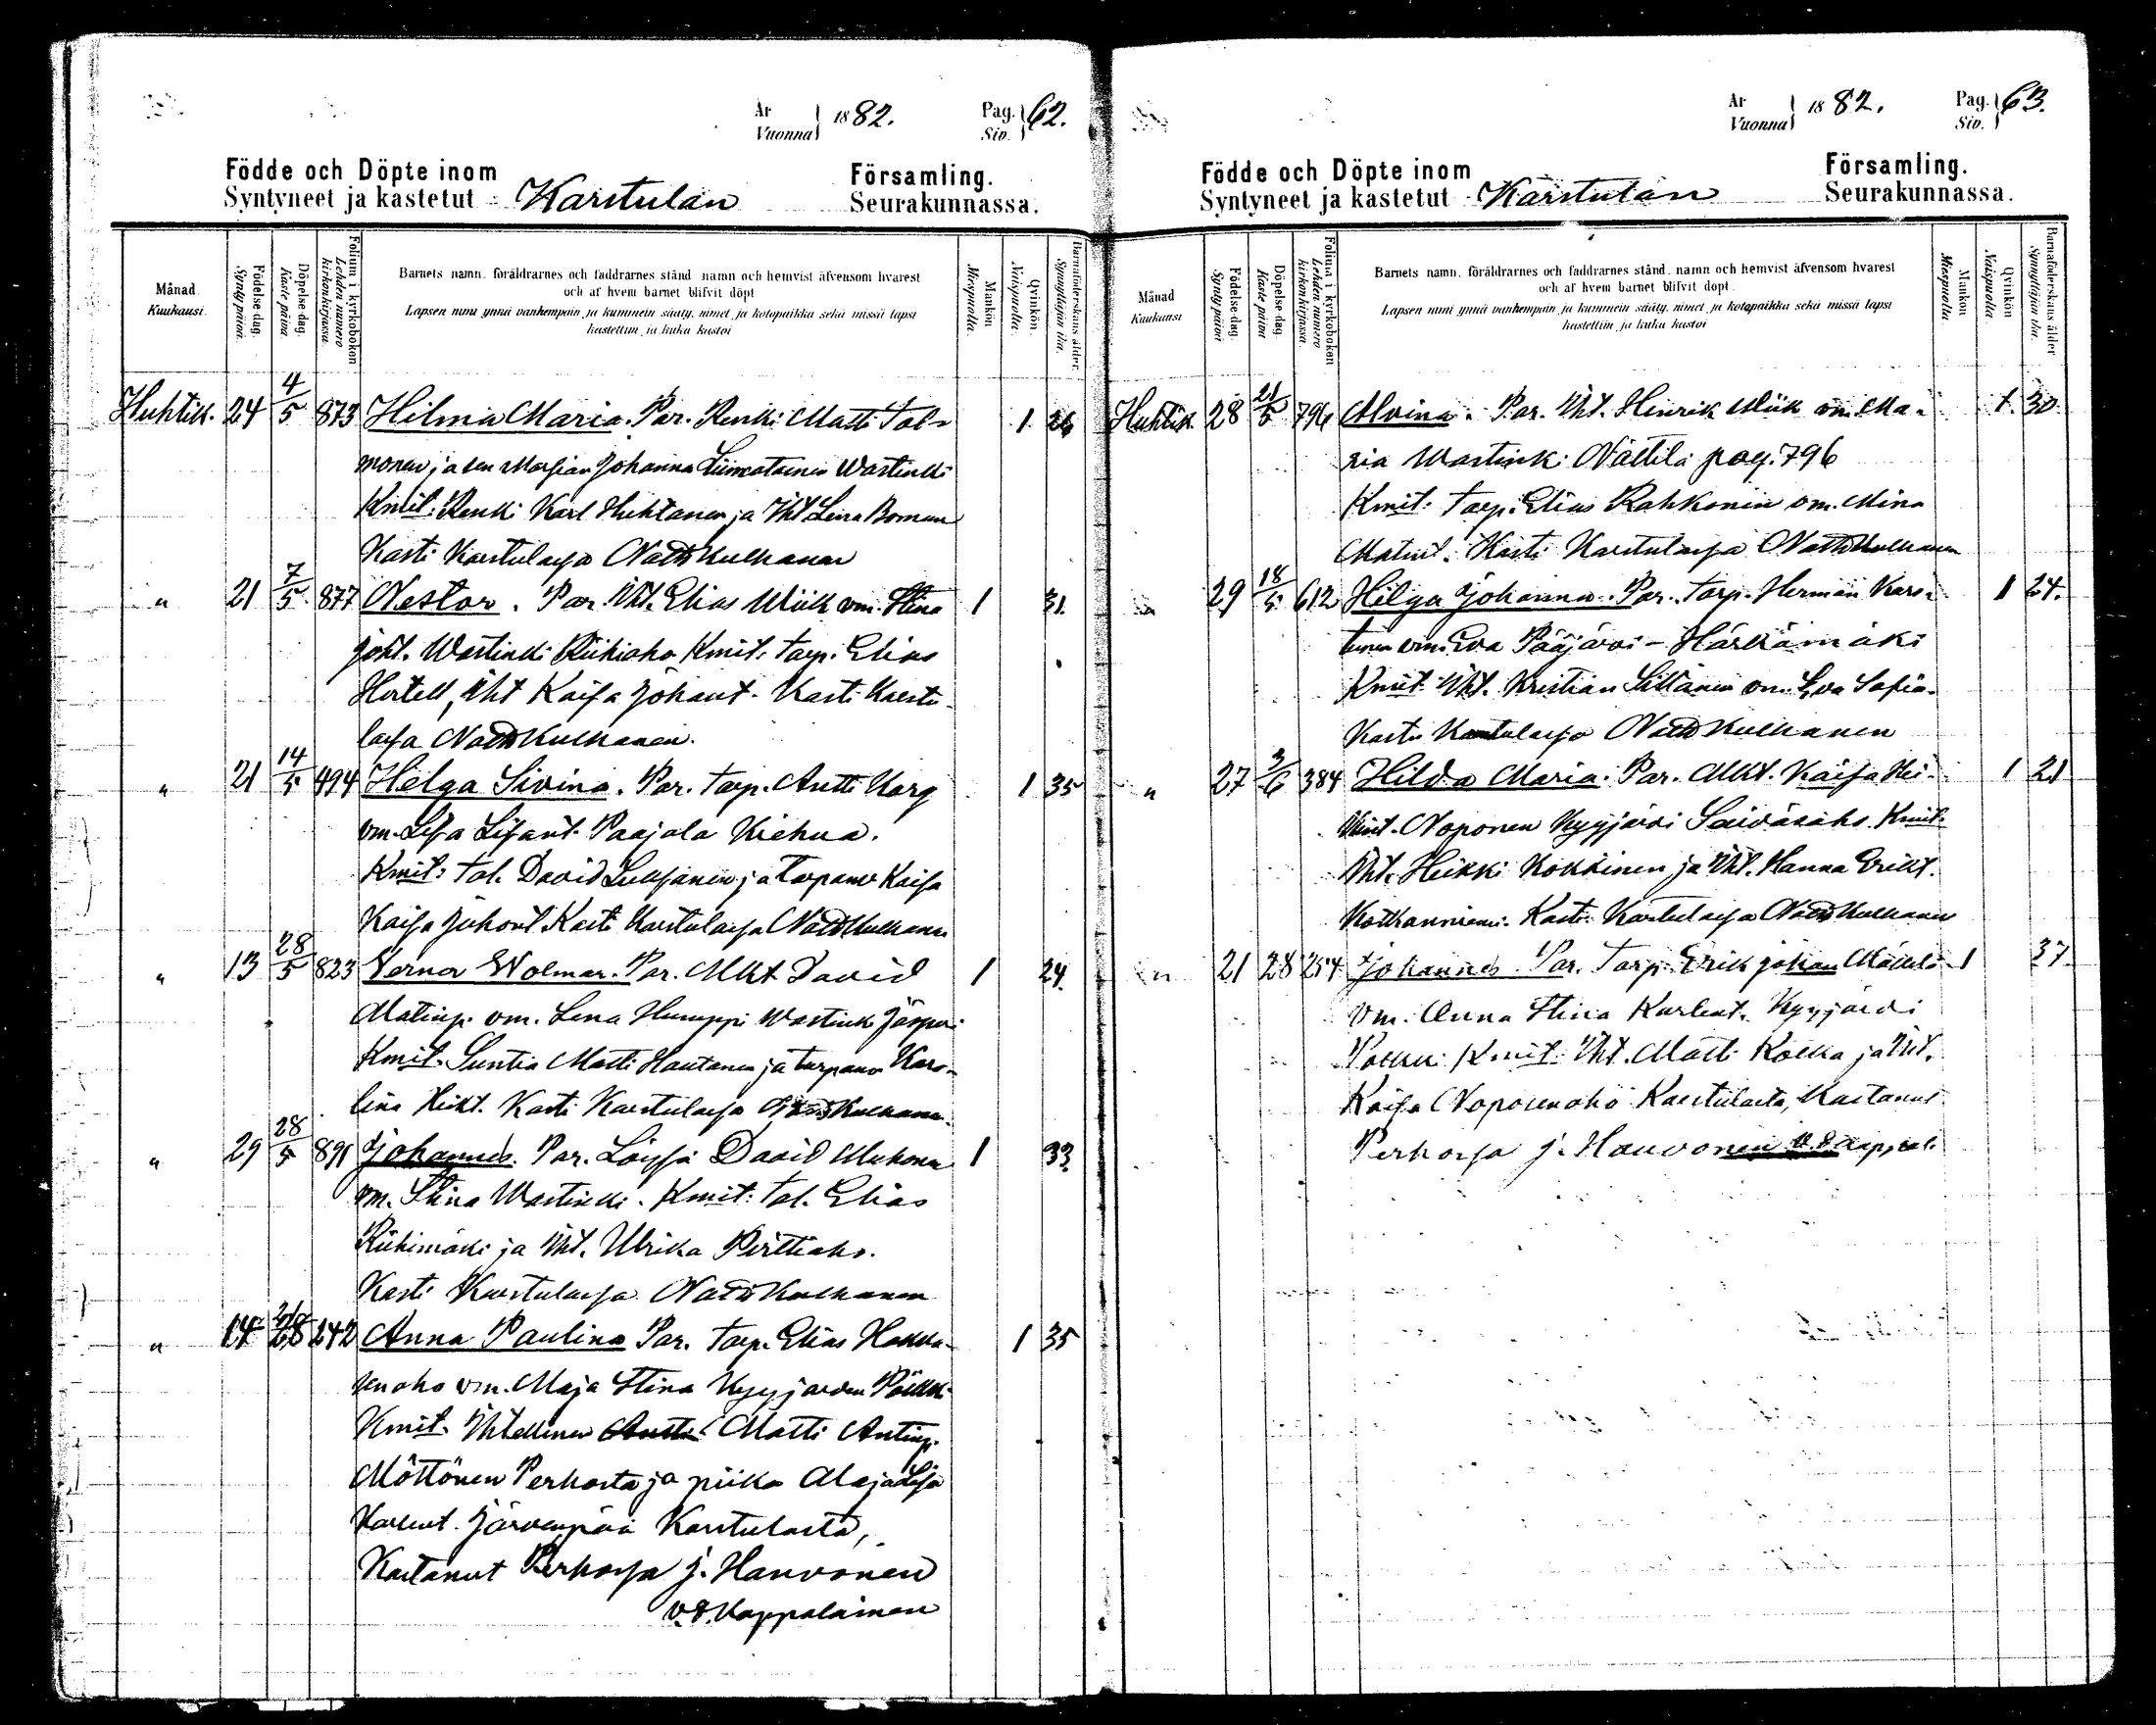 År 1882. Pag. 62.
Vuonna Siv.
Födde och Döpte inom Församling.
Syntyneet ja kastetut Karstulan Seurakunnassa.
Månad
Kuukausi.
Födelse dag.
Synty päivä.
Döpelse dag.
Kaste päivä.
Folium i kyrkoboken
Lehden numero
kirkonkirjassa.
Barnets namn, föräldrarnes och faddrarnes stånd, namn och hemvist äfvensom hvarest
och af hvem barnet blifvit döpt
Lapsen nimi ynnä vanhempain ja kummein sääty, nimet ja kotopaikka sekä missä lapsi
kastettiin ja kuka kastoi
Mankön
Miespuolia.
Qvinkön
Naispuolia.
Barnaföderskans ålder.
Synnyttäjän ikä.
Huhtik. 24 4/5 873 Hilma Maria. Par. Renki Matti Tal- 1 26
monen ja sen Morsian Johanna Liimatainen Wastinki
Kmit: Renki Karl Huhtanen ja Iht Lena Boman
Kasti Karstulassa Kulhanen
" 21 7/5 877 Nestor. Par. Iht. Elias Wiik vm. Stina 1 31.
Joht. Wastinki Riihiaho Kmit. Torp. Elias
Hertell, Iht Kaisa Johant. Kasti Karstu-
lassa Kulhanen.
" 21 14/5 494 Helga Sivina. Par. Torp. Antti Karg 1 35
vm. Lisa Lisant. Paajala Kiehua.
Kmit: Tal. David ja Torpanv Kaisa
Kaisa Juhont Kasti Karstulassa Kulhanen
" 13 28/5 823 Verner Wolmar. Par. Mkt David 1 24.
Matinp. vm. Lena Humppi Wastinki
Kmit. Suntia Matti Hautanen ja torpanv Karo-
lina Heikt. Kasti Karstulassa Kulhanen.
" 29 28/5 891 Johannes. Par. Löysä David Muhonen 1 33.
vm. Stina Wastinki. Kmit: Tal. Elias
Riihimäki ja Iht. Ulrika Perttiaho.
Kasti Karstulassa Kulhanen
" 14 28 242 Anna Paulina Par. Torp. Elias 1 35
vm. Maja Stina Kyyjärven
Kmit. Itsellinen Antti Matti Antinp.
Möttönen Perhosta ja piika Maja Lisa
Karlent. Järvenpää Karstulasta,
Kastanut Perhossa J. Hauvonen
v.t. Kappalainen
År 1882. Pag. 63.
Vuonna Siv.
Födde och Döpte inom Församling.
Syntyneet ja kastetut Karstulan Seurakunnassa.
Månad
Kuukausi
Födelse dag.
Synty päivä
Döpelse dag.
Kaste päivä
Folium i kyrkoboken
Lehden numero
kirkonkirjassa.
Barnets namn, föräldrarnes och faddrarnes stånd, namn och hemvist äfvensom hvarest
och af hvem barnet blifvit döpt.
Lapsen nimi ynnä vanhempain ja kummein sääty, nimet ja kotopaikka sekä missä lapsi
kastettiin ja kuka kastoi
Mankön
Miespuolia
Qvinkön
Naispuolia
Barnaföderskans ålder
Synnyttäjän ikä.
Huhtik. 28 21/5 796 Alvina. Par. Iht. Henrik Wiik vm. Ma- 1. 30.
ria Wastinki Nättilä pag. 796
Kmit: Torp. Elias Rahkonen vm. Mina
Matint. Kasti Karstulassa Kulhanen
" 29 18/5 612 Hilga Johanna. Par. Torp. Herman Kars- 1 24.
tunen vm. Eva Pääjärvi - Härkämäki
Kmit Iht. Kristian Sillanen vm. Eva Sofia.
Kasti Karstulassa Kulhanen
" 27 3/6 384 Hilda Maria. Par. Mkt. Kaisa Hei- 1 21
kint. Noponen Kyyjärvi Kmit.
Iht. Heikki Kokkinen ja Iht. Hanna Erikt.
Kotkanniemi. Kasti Karstulassa Kulhanen
" 21 28 254 Johannes. Par. Torp. Erik Johan Mäkelä 1 37.
vm. Anna Stina Karlent. Kyyjärvi
Kmit: Iht. Matti ja Iht.
Kaisa Noposenaho Karstulasta, Kastanut
Perhossa J. Hauvonen v.t. kappal.